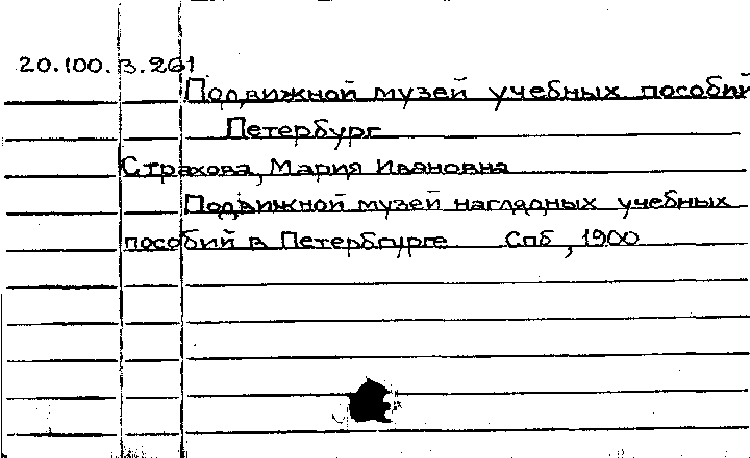 20.100.3.261
Подвижной музей учебных пособий
Петербург
Страхова, Мария Ивановна
Подвижной музей наглядных учебных
пособий в Петербурге Спб, 1900